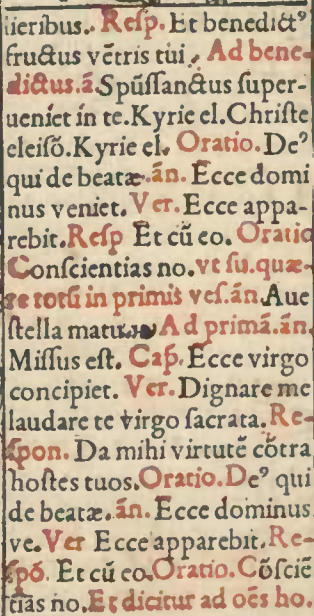 lieribus. Resp. Et benedictꝰ
fructus vẽtris tui. Ad bene-
dictus.ã.Spũſſanctus ſuper-
ueniet in te.Kyrie el.Chriſte
eleiſõ.Kyrie el. Oratio. Deꝰ
qui de beatæ.ãn. Ecce domi
nus veniet. Ver. Ecce appa-
rebit.Reſp Et cũ eo. Oratio
Conſcientias no. vt ſu.quæ-
re totũ in primis veſ.ãn Aue
ſtella matu. Ad primã.ãn.
Miſſus eſt. Cap̃. Ecce virgo
concipiet. Ver. Dignare me
laudare te virgo ſacrata. Re-
ſpon. Da mihi virtutẽ cõtra
hoſtes tuos.Oratio.Deꝰ qui
de beatæ. ãn. Ecce dominus
ve. Ver Ecce apparebit. Re-
ſpõ. Et cũ eo.Oratio. Cõſciẽ
tias no. Et dicitur ad oẽs ho.